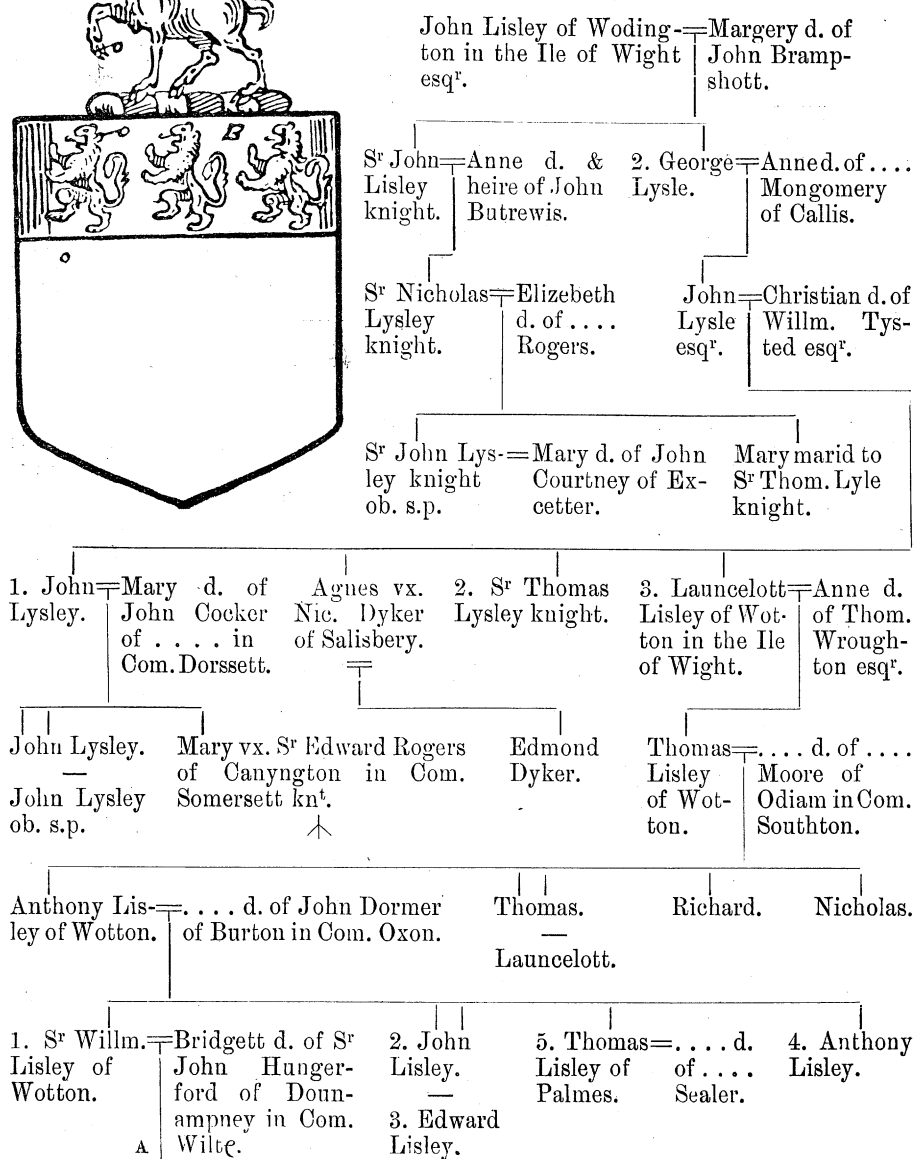 John Lisley of Woding-
ton in the Ile of Wight
esqr.
Margery d. of
John Bramp-
shott.
B
Sr John
Lisley
knight.
Anne d. &
heire of John
Butrewis.
2. George
Lysle.
Anne d. of ....
Mongomery
of Callis.
Sr Nicholas
Lysley
knight.
Elizebeth
d. of ....
Rogers.
John
Lysle
esqr.
Christian d. of
Willm. Tys-
ted esqr.
Sr John Lys-
ley knight
ob. s.p.
Mary d. of John
Courtney of Ex-
cetter.
Mary marid to
Sr Thom. Lyle
knight.
1. John
Lysley.
Mary d. of
John Cocker
of .... in
Com. Dorssett.
Agnes vx.
Nic. Dyker
of Salisbery.
2. Sr Thomas
Lysley knight.
3. Launcelott
Lisley of Wot-
ton in the Ile
of Wight.
Anne d.
of Thom.
Wrough-
ton esqr.
John Lysley.
—
John Lysley
ob. s.p.
Mary vx. Sr Edward Rogers
of Canyngton in Com.
Somersett knt.
Edmond
Dyker.
Thomas
Lisley
of Wot-
ton.
.... d. of ....
Moore of
Odiam in Com.
Southton.
Anthony Lis-
ley of Wotton.
.... d. of John Dormer
of Burton in Com. Oxon.
Thomas.
—
Launcelott.
Richard.
Nicholas.
1. Sr Willm.
Lisley of
Wotton.
Bridgett d. of Sr
John Hunger-
ford of Doun-
ampney in Com.
Wiltꝭ.
A
2. John
Lisley.
—
3. Edward
Lisley.
5. Thomas
Lisley of
Palmes.
.... d.
of ....
Sealer.
4. Anthony
Lisley.